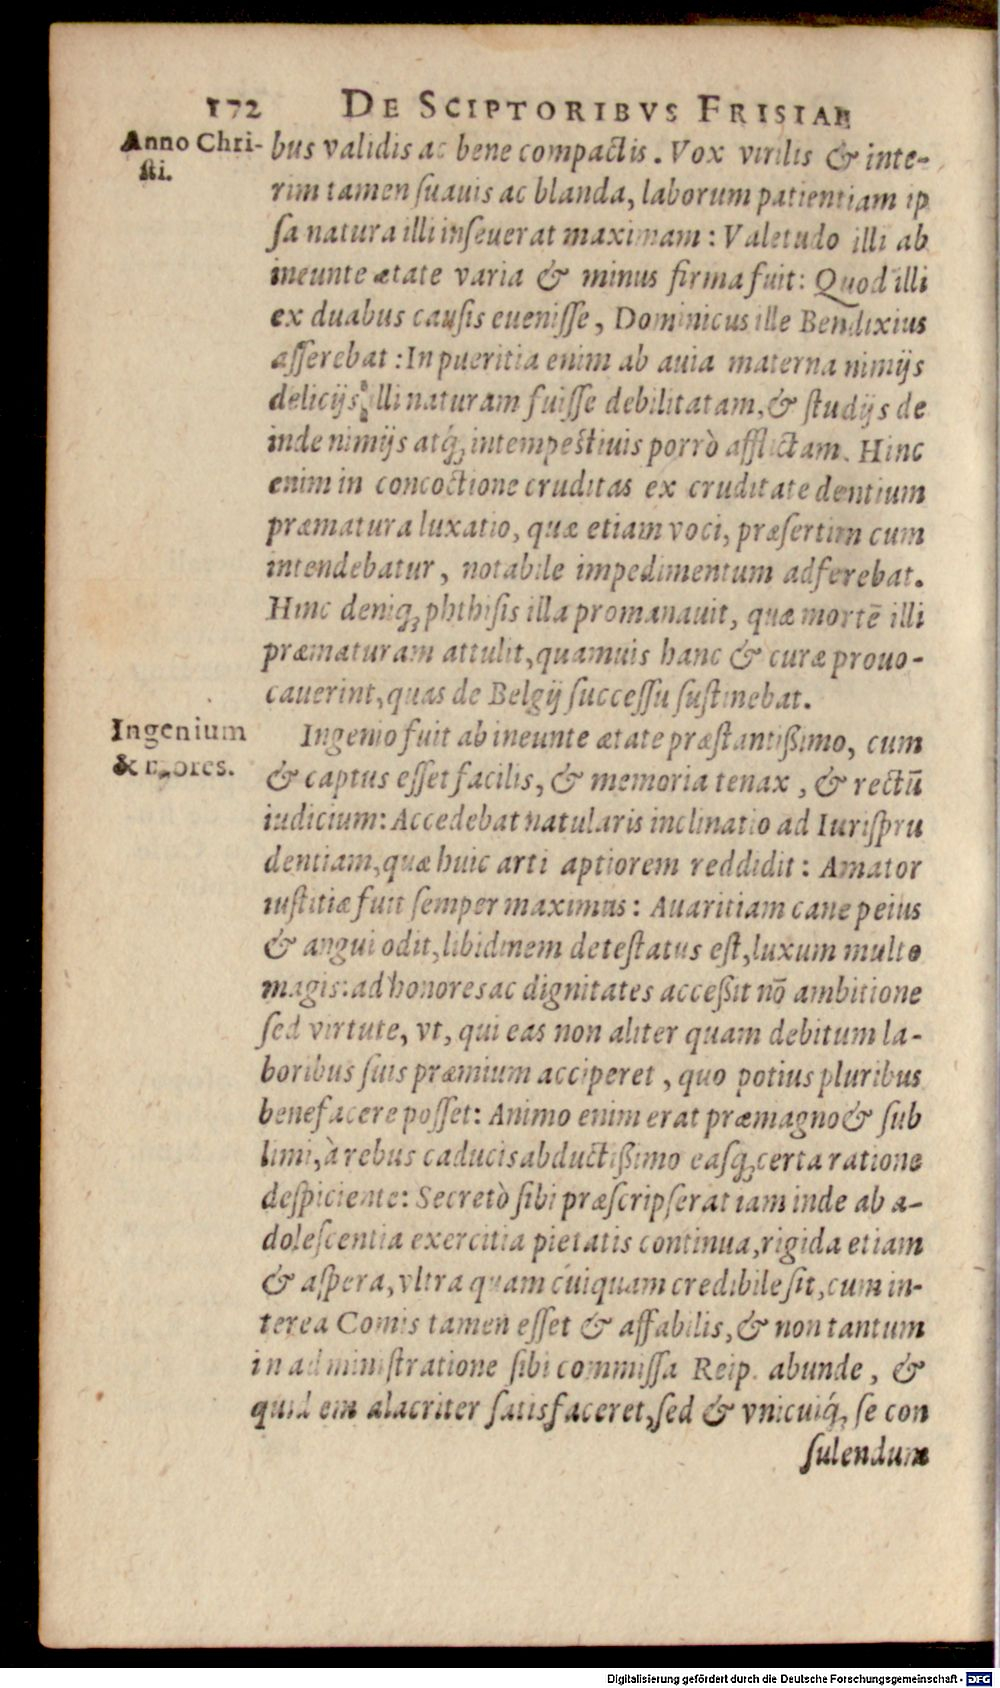 172 DE SCIPTORIBVS FRISIAE
Anno Chri-
sti.
bus validis ac bene compactis. Vox virilis & inte-
rim tamen suauis ac blanda, laborum patientiam ip
sa natura illi inseuerat maximam: Valetudo illi ab
ineunte ætate varia & minus firma fuit: Quod illi
ex duabus causis euenisse, Dominicus ille Bendixius
asserebat: In pueritia enim ab auia materna nimijs
delicijs illi naturam fuisse debilitatam, & studijs de
inde nimijs atq́; intempestiuis porrò afflictam. Hinc
enim in concoctione cruditas ex cruditate dentium
præmatura luxatio, quæ etiam voci, præsertim cum
intendebatur, notabile impedimentum adferebat.
Hinc deniq; phthisis illa promanauit, quæ mortē illi
præmaturam attulit, quamuis hanc & curæ prouo-
cauerint, quas de Belgij successu sustinebat.
Ingenium
& mores.
Ingenio fuit ab ineunte ætate præstantißimo, cum
& captus esset facilis, & memoria tenax, & rectū
iudicium: Accedebat natularis inclinatio ad Iurispru
dentiam, quæ huic arti aptiorem reddidit: Amator
iustitiæ fuit semper maximus: Auaritiam cane peius
& angui odit, libidinem detestatus est, luxum multo
magis: ad honores ac dignitates acceßit nō ambitione
sed virtute, vt, qui eas non aliter quam debitum la-
boribus suis præmium acciperet, quo potius pluribus
benefacere posset: Animo enim erat præmagno & sub
limi, à rebus caducis abductißimo easq; certa ratione
despiciente: Secretò sibi præscripserat iam inde ab a-
dolescentia exercitia pietatis continua, rigida etiam
& aspera, vltra quam cuiquam credibile sit, cum in-
terea Comis tamen esset & affabilis, & non tantum
in administratione sibi commissa Reip. abunde, &
quid em alacriter satisfaceret, sed & vnicuiq́; se con
sulendum
Digitalisierung gefördert durch die Deutsche Forschungsgemeinschaft - DFG